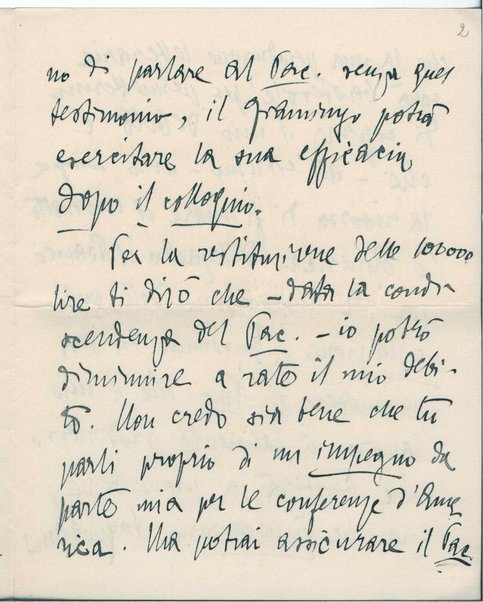 2
no di parlare al Pac. senza quel
testimonio, il Gramingo potrà
esercitare la sua efficacia
dopo il colloquio.
Per la restituzione delle 100000
lire ti dirò che – data la condi
scendenza del Pac. – io potrò
diminuire a rate il mio debi-
to. Non credo sia bene che tu
parli proprio di un impegno da
parte mia per le conferenze d'Ame
rica. Ma potrai assicurare il Pac